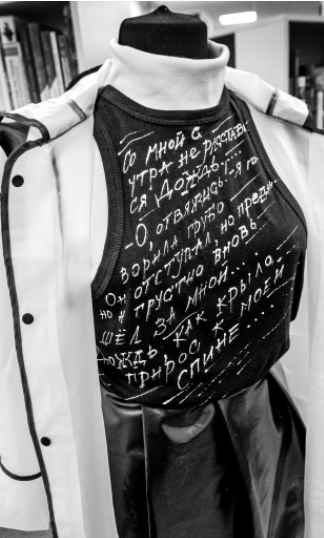 Со мной с
утра не расстава
ся Дождь....
-О, отвяжись! -я го
ворила грубо
Он отступал, но предан
но и грустно вновь
шёл за мной...
Дождь, как крыло...
прирос к моей
спине...